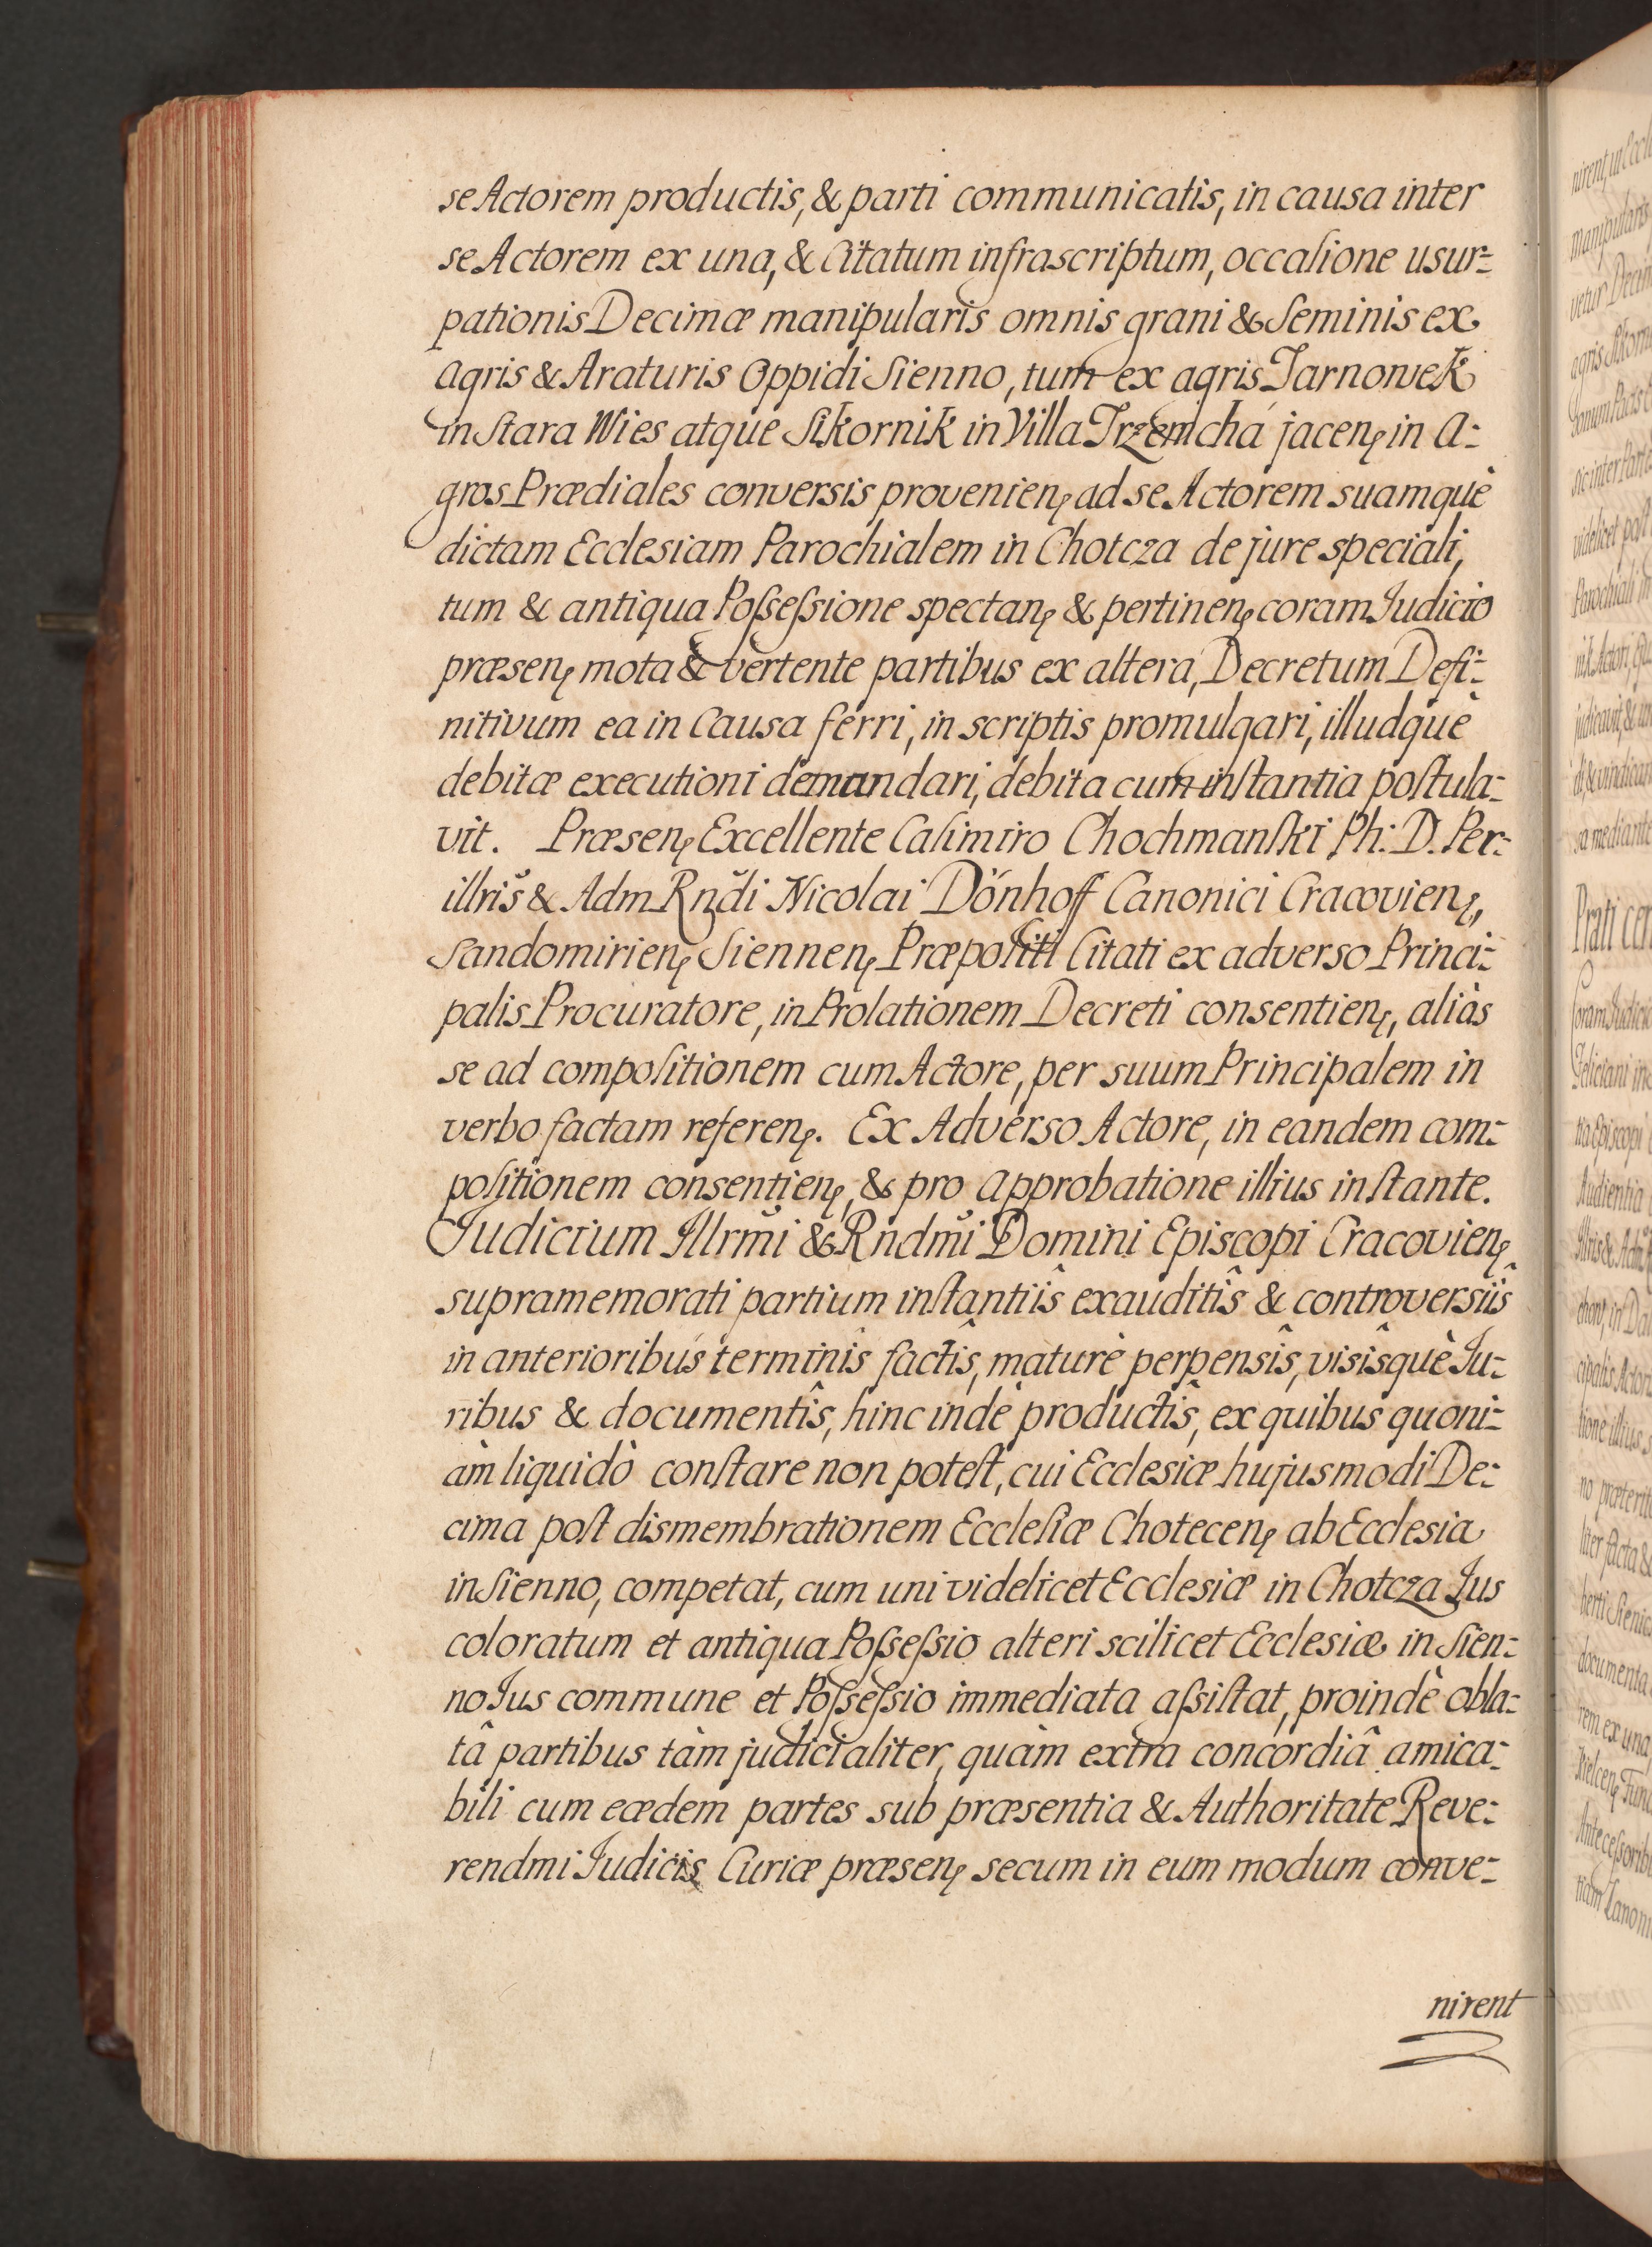 se Actorem productis, & parti communicatis, in causa inter
se Actorem ex una, & Citatum infrascriptum, occasione usur=
pationis Decimæ manipularis omnis grani & Seminis ex
agris & Araturis Oppidi Sienno, tum ex agris Jarnowek
in Stara Wies atque Sikornik in Villa Trzemcha jacenȩ in A=
gros Prædiales conversis provenienȩ ad se Actorem suamquè
dictam Ecclesiam Parochialem in Chotcza de jure speciali,
tum & antiqua Poſseſsione spectanȩ & pertinenȩ coram Judicio
præsenȩ mota & vertente partibus ex altera, Decretum Defi=
nitivum ea in Causa ferri, in scriptis promulgari, illudquè
debitæ executioni demandari, debita cum inſtantia poſtula=
vit. Præsenȩ Excellente Caſimiro Chochmanſki Ph: D. Per=
illris̃ & Adm Rndi Nicolai Dönhoff Canonici Cracovienȩ,
Sandomirienȩ Siennenȩ Præpoſiti Citati ex adverso Princi=
palis Procuratore, in Prolationem Decreti consentienȩ, aliàs
se ad compoſitionem cum Actore, per suum Principalem in
verbo factam referenȩ. Ex Adverso Actore, in eandem com=
poſitionem consentienȩ, & pro approbatione illius inſtante.
Judicium Illrm̃i & Rndm̃i Domini Episcopi Cracovienȩ
supramemorati partium inſtantiîs exauditîs & controversiîs
in anterioribus terminîs factîs, maturè perpensîs, visîsquè Ju=
ribus & documentîs, hinc indè productîs, ex quibus quoni=
àm liquidò conſtare non poteſt, cui Ecclesiæ hujusmodi De=
cima poſt dismembrationem Eccleſiæ Chotecenȩ ab Ecclesia
in Sienno, competat, cum uni videlicet Ecclesiæ in Chotcza Jus
coloratum et antiqua Poſseſsio alteri scilicet Ecclesiæ in Sien=
no Jus commune et Poſseſsio immediata aſsiſtat, proindè obla=
tâ partibus tàm judicialiter, quàm extra concordiâ amica=
bili cum eædem partes sub præsentia & Authoritate Reve=
rendmi Judicis Curiæ præsenȩ secum in eum modum conve=
nirent